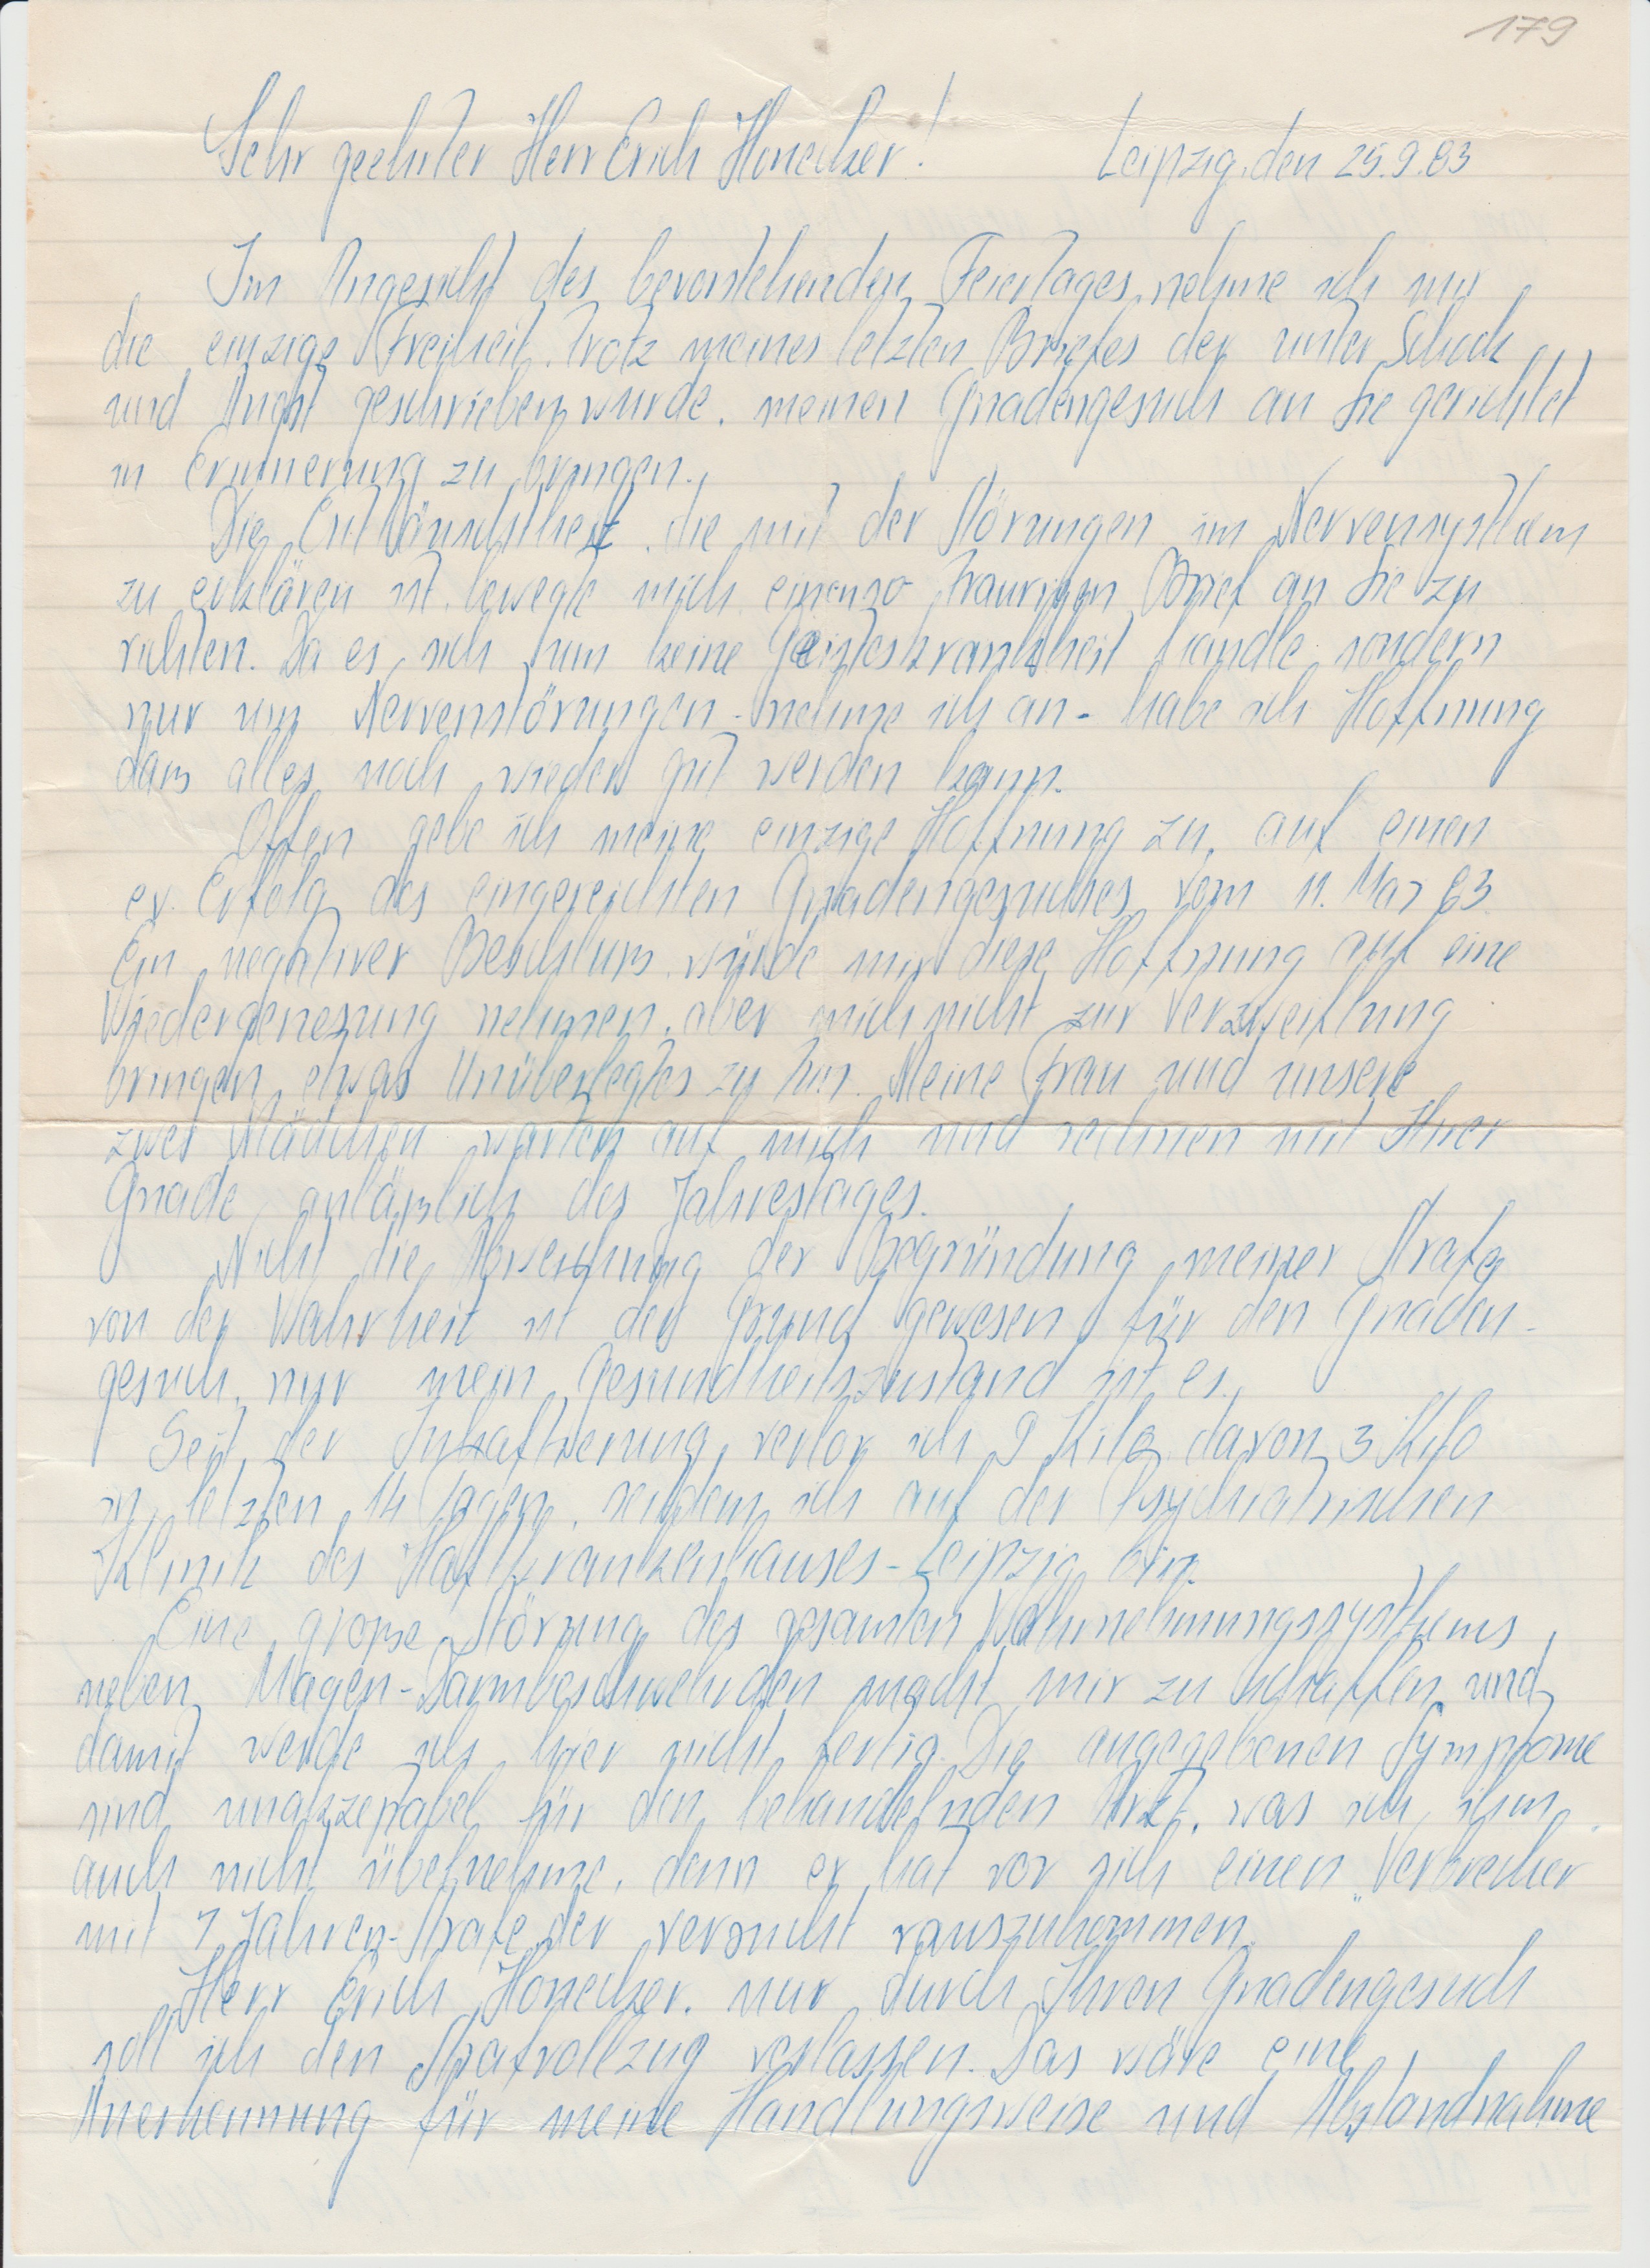 179
Sehr geehrter Herr Erich Honecker!
Leipzig, den 25.9.83
Im Angesicht des bevorstehenden Feiertages nehme ich mir
die einzige Freiheit, trotz meines letzten Briefes der unter Schock
und Angst geschrieben wurde, meinen Gnadengesuch an Sie gerichtet
in Erinnerung zu bringen.
Die Enttäuschtheit, die mit der Störungen im Nervensysthem
zu erklären ist, bewegte mich einen so traurigen Brief an Sie zu
richten. Da es sich um keine Geisteskrankheit handle, sondern
nur um Nervenstörungen - nehme ich an - habe ich Hoffnung
dass alles noch wieder gut werden kann.
Offen gebe ich meine einzige Hoffnung zu, auf einen
ev. Erfolg des eingereichten Gnadengesuches vom 11. Mai 83.
Ein negativer Beschluss würde mir diese Hoffnung auf eine
Wiedergenesung nehmen, aber mich nicht zur Verzweiflung
bringen etwas Unüberlegtes zu tun. Meine Frau und unsere
zwei Mädchen warten auf mich und rechnen mit Ihrer
Gnade anlässlich des Jahrestages.
Nicht die Abweichung der Begründung meiner Strafe
von der Wahrheit ist der Grund gewesen für den Gnaden-
gesuch, nur mein Gesundheitszustand ist es.
Seit der Inhaftierung verlor ich 9 Kilo, davon 3 Kilo
in letzten 14 Tagen, seitdem ich auf der Psychiatrischen
Klinik des Haftkrankenhauses-Leipzig bin.
Eine grosse Störung des gesamten Wahrnehmungssysthems,
neben Magen-Darmbeschwehrden macht mir zu schaffen und
damit werde ich hier nicht fertig. Die angegebenen Symptome
sind unakzeptabel für den behandelnden Arzt, was ich ihm
auch nicht übelnehme, denn er hat vor sich einen „Verbrecher"
mit 7 Jahren-Strafe der versucht rauszukommen.
Herr Erich Honecker, nur durch Ihren Gnadengesuch
soll ich den Strafvollzug verlassen. Das wäre eine
Anerkennung für meine Handlungsweise und Abstandnahme